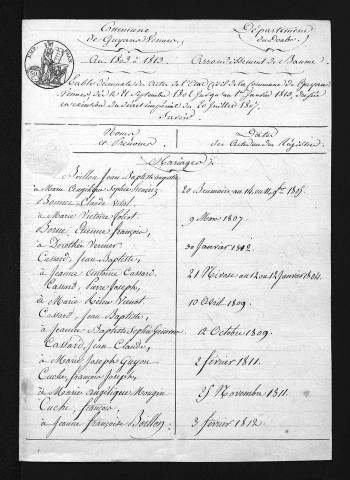 Commune
de Guyans Vennes,
Département
du Doubs,
An 1802 à 1813.
Arrondissement de Baume
Table décennale des Actes de l'Etat Civil de la Commune de Guyans
Vennes, dès le 21 Septembre 1802, jusqu'au 1er janvier 1813,
en exécution du décret impérial du 20 juillet 1807.
Savoir
Noms
et Prénoms
Dates
des Actes dans les Registres
Mariages
Boillon, Jean Baptiste
à Marie Angélique Sophie
20 Brumaire an 14, ou 11 9bre 1805.
Bonnet Claude Vital
à Marie Victoire Joliot
9 Mars 1807.
Borne Etienne françois,
à Dorothée Vernier
30 janvier 1812.
Cassard, Jean Baptiste,
à Jeanne Cassard.
21 Nivose an 12 ou 12 Janvier 1804.
Cassard, Pierre Joseph,
à Marie Vienot.
10 Avril 1809.
Cassard, Jean Baptiste,
à Jeanne Baptiste Sophie
12 Octobre 1809.
Cassard, Jean Claude,
à Marie Joseph Guyon
2 février 1811.
Cuche, françois Joseph,
à Marie Angélique Mougin
25 Novembre 1811.
Cuche, françois,
à Jeanne françoise Boillon.
3 février 1812.